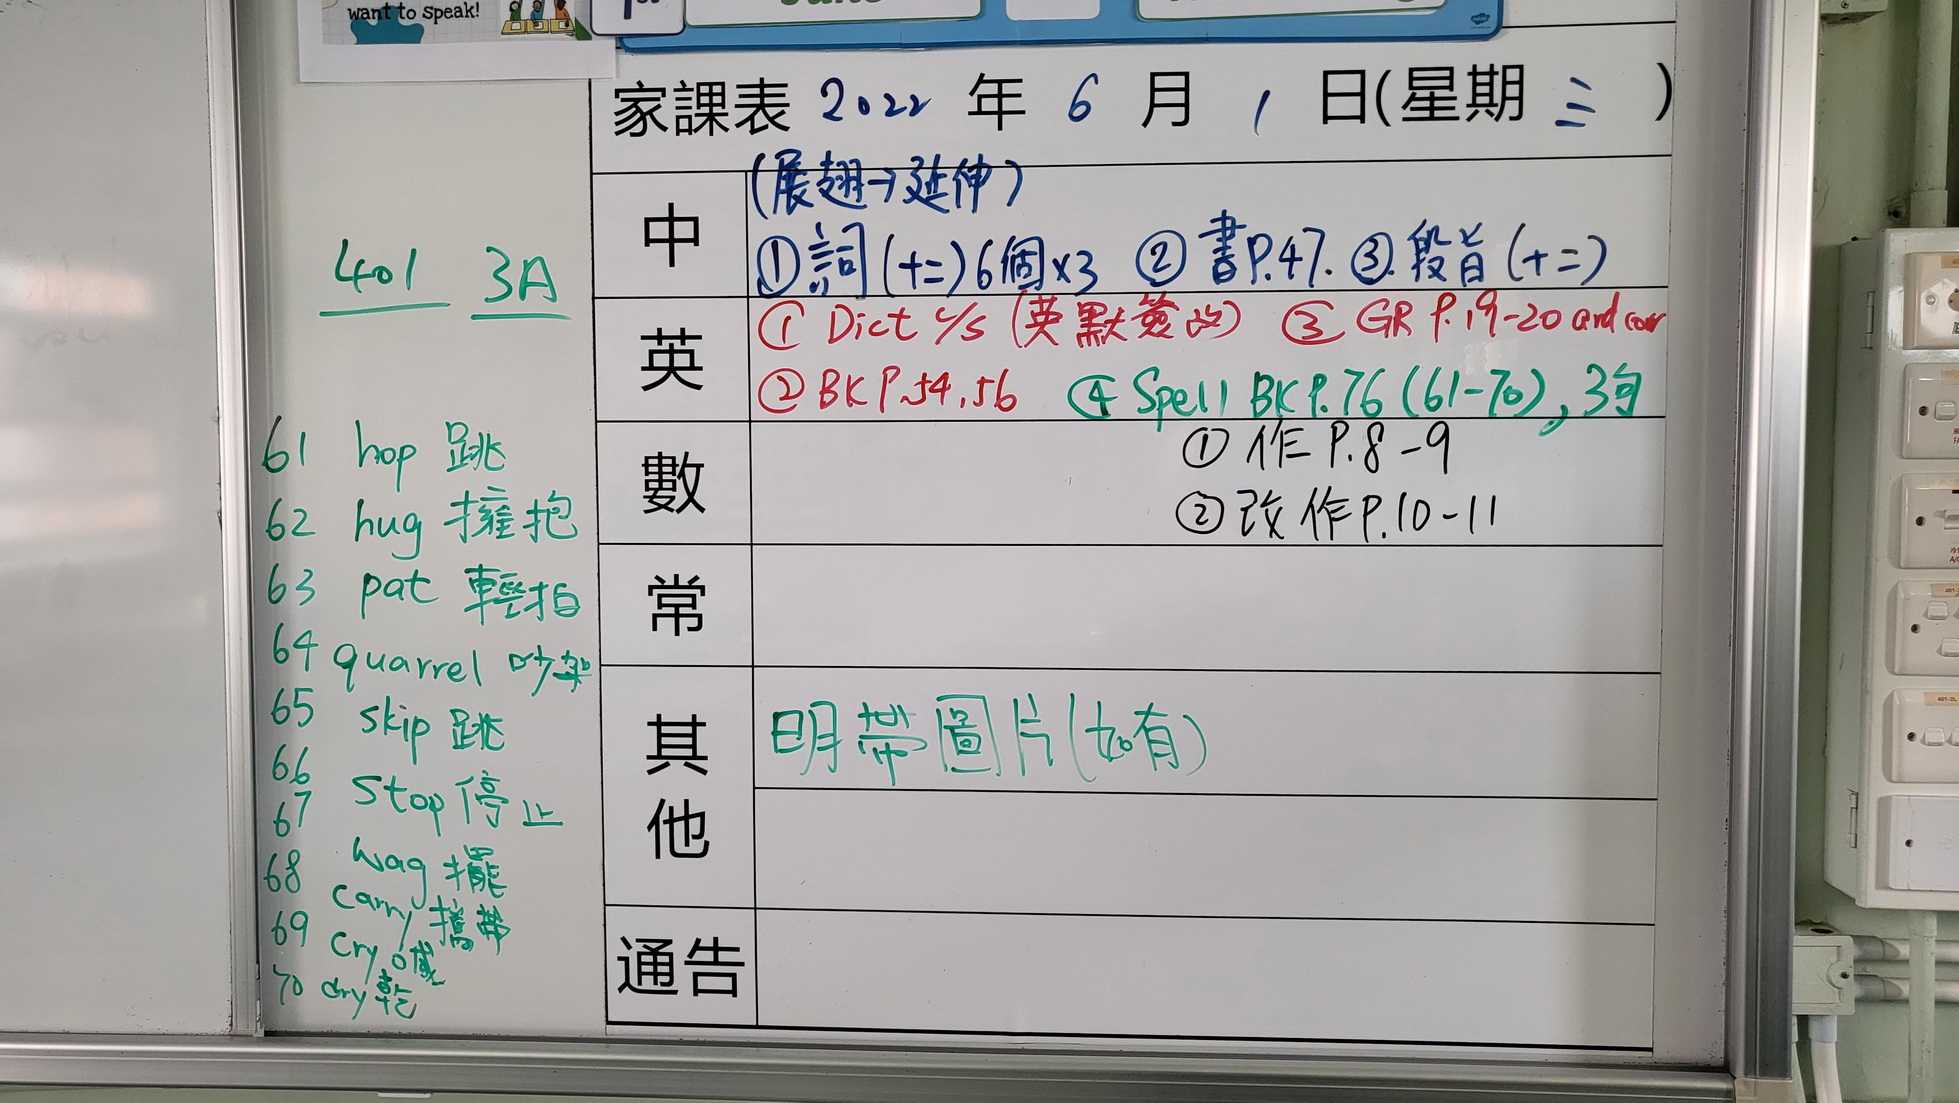 want to speak!
1st
June
家課表 2022 年 6 月 1 日(星期 三 )
401 3A
61 hop 跳
62 hug 擁抱
63 pat 輕拍
64 quarrel 吵架
65 skip 跳
66 stop 停止
67 wag 擺
68 carry 攜帶
69 cry 喊
70 dry 乾
中
(展翅→延伸)
①詞(十二)6個x3 ②書P.47. ③.段旨(十二)
英
①Dict c/s (英默簽改) ③GR P.19-20 and corr
②BK P.54,56 ④Spell BK P.76 (61-70), 3句
數
①作P.8-9
②改作P.10-11
常
其他
明帶圖片(如有)
通告